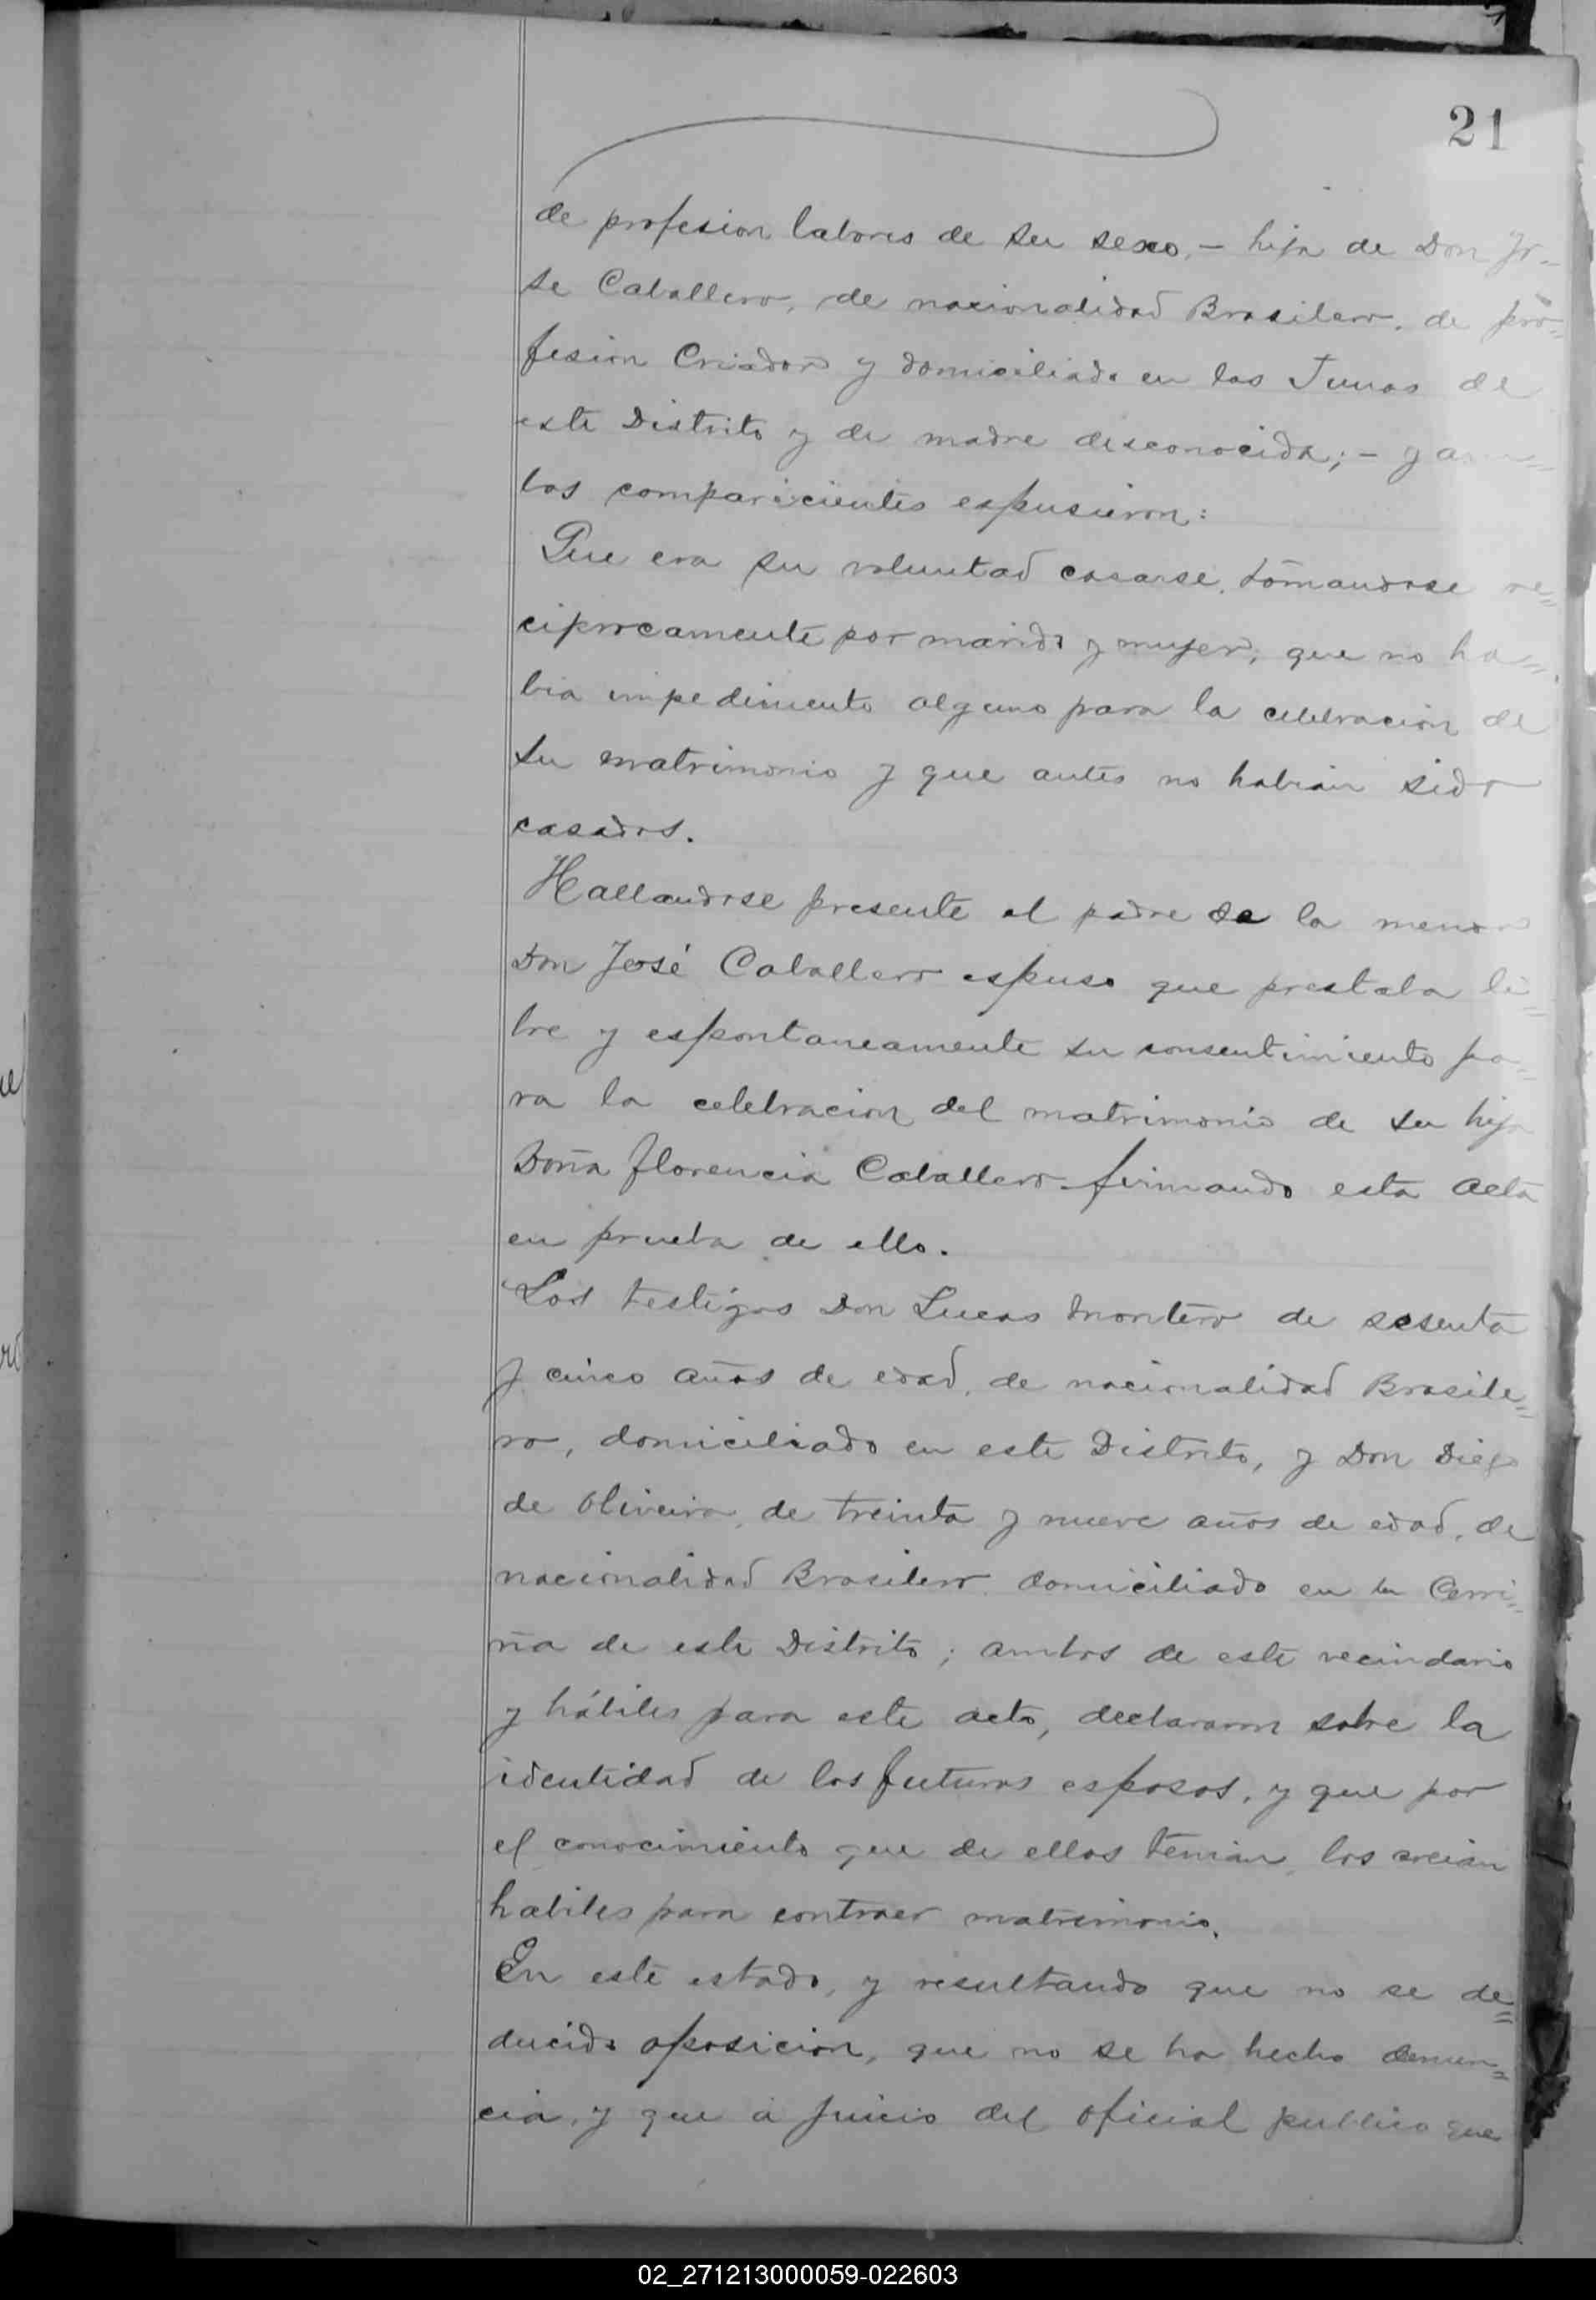 21
de profesion labores de su sexo, - hija de Don Jo-
se Caballero, de nacionalidad Brasilero, de pro=
fesion Criador y domiciliado en las Tunas de
este Distrito y de madre desconocida; - y am=
bos comparicientes espusieron:
Que era su voluntad casarse, tomandose re=
ciprocamente por marido y mujer, que no ha=
bia impedimento alguno para la celebracion de
su matrimonio y que antes no habian sido
casados.
Hallandose presente el padre de la menor
Don José Caballero espuso que prestaba li=
bre y espontaneamente su consentimiento pa=
ra la celebracion del matrimonio de su hija
Doña Florencia Caballero firmando esta acta
en prueba de ello.
Los testigos Don Lucas Montero de sesenta
y cinco años de edad, de nacionalidad Brasile=
ro, domiciliado en este Distrito, y Don Diego
de Oliveira, de treinta y nueve años de edad, de
nacionalidad Brasilero domiciliado en la
de este Distrito; ambos de este vecindario
y hábiles para este acto, declararon sobre la
identidad de los futuros esposos, y que por
el conocimiento que de ellos tenian, los creian
habiles para contraer matrimonio.
En este estado, y resultando que no se de=
ducido oposicion, que no se ha hecho denun=
cia, y que a juicio del oficial publico que
02_271213000059-022603